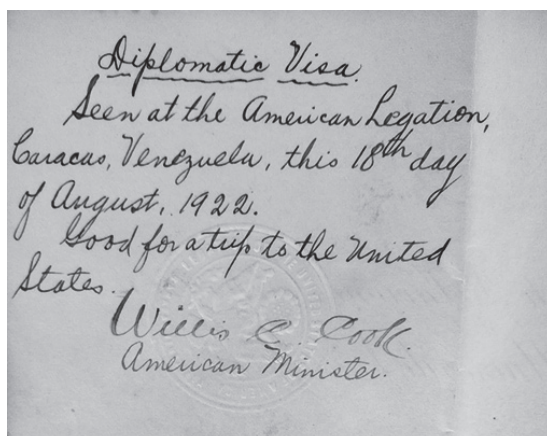 Diplomatic Visa.
Seen at the American Legation,
Caracas, Venezuela, this 18th day
of August, 1922.
Good for a trip to the United
States.
Willis C. Cook.
American Minister.